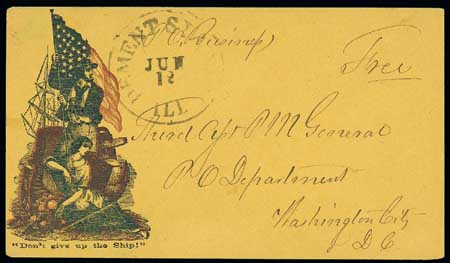 P.O. Business
JUN
12
ILL
Free
Third Asst P M General
P O Department
Washington City
D C
"Don't give up the Ship!"